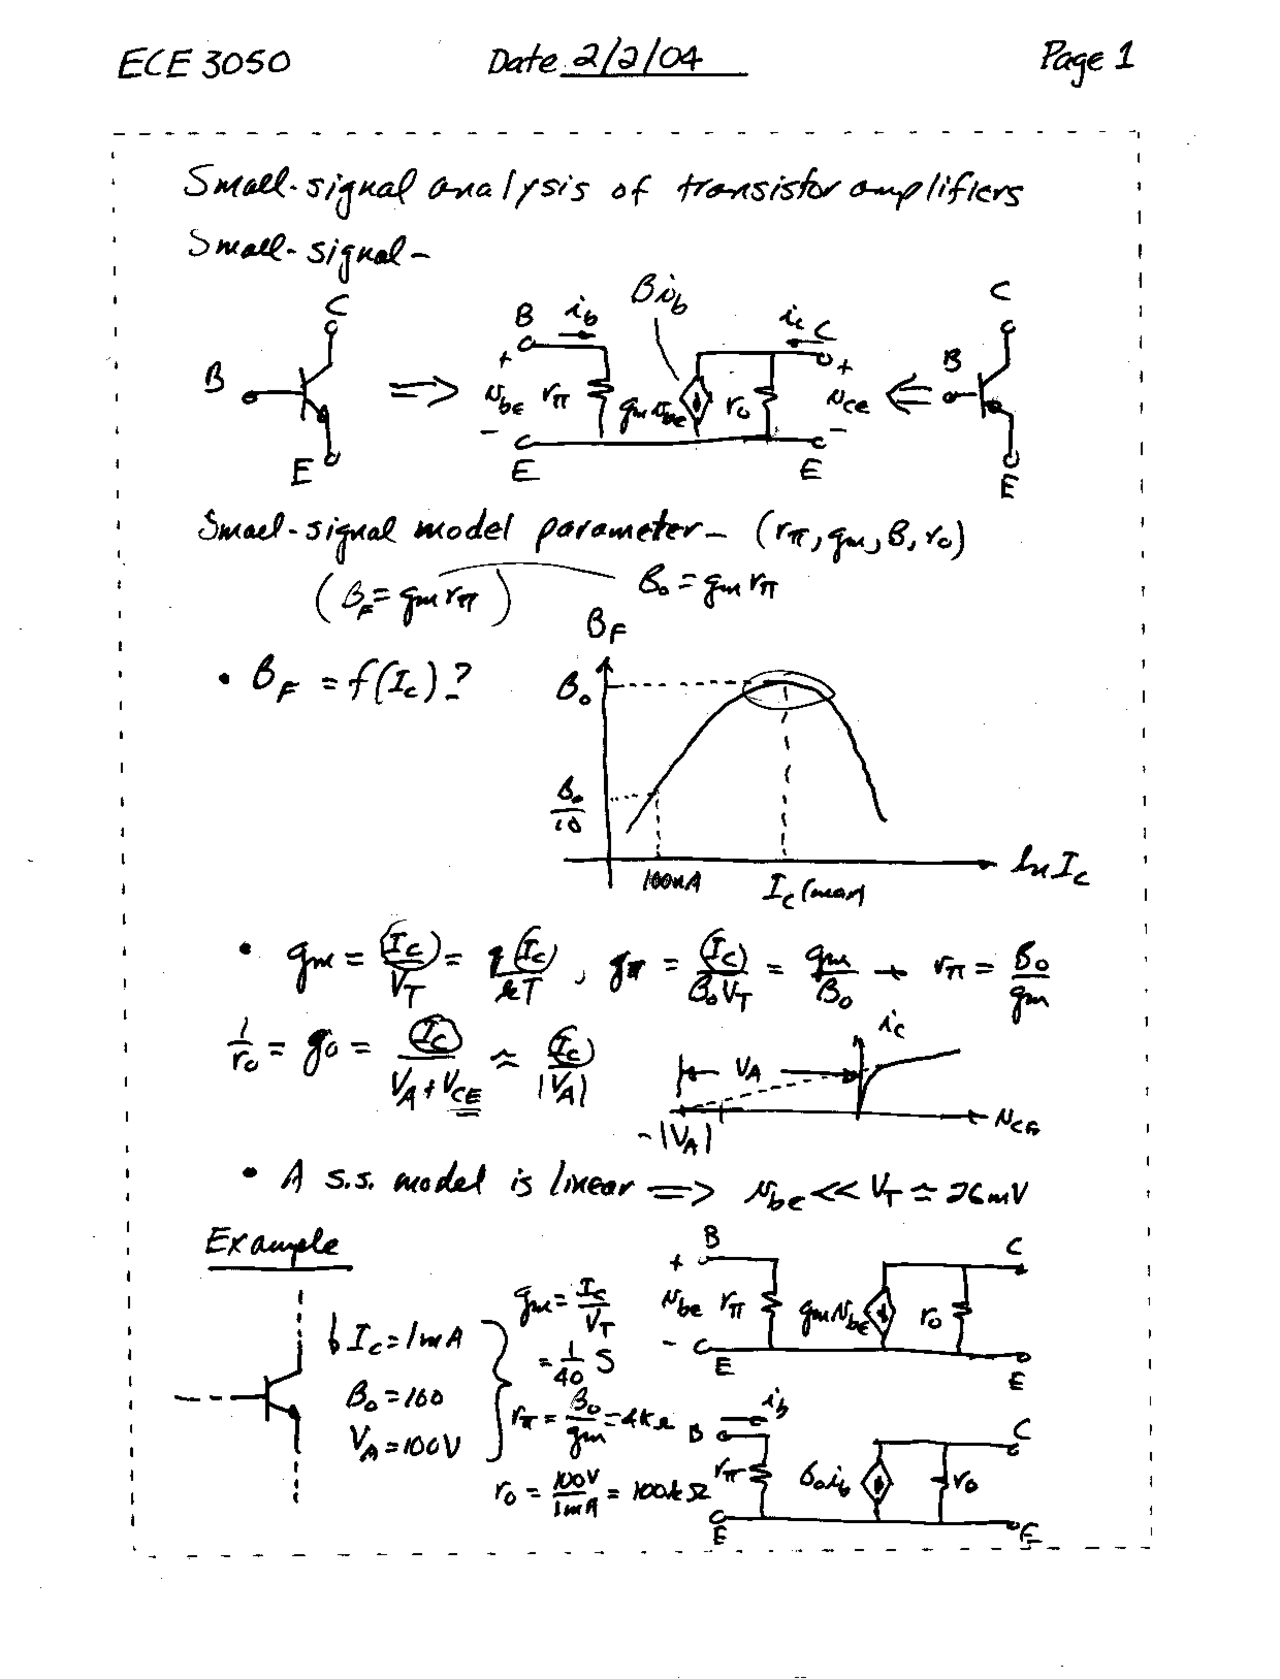 ECE 3050 Date 2/2/04 Page 1
Small-signal analysis of transistor amplifiers
Small-signal -
C
B
E
⇒
B i_b βi_b i_c C
+ v_be - r_π g_m v_be r_o + v_ce -
E E
⇐
C
B
E
Small-signal model parameter - (r_π, g_m, β, r_o)
(β_F = g_m r_π) β_o = g_m r_π
• β_F = f(I_C)?
β_F
β_o
β_o/10
100nA I_C(max) ln I_C
• g_m = I_C/V_T = qI_C/kT, g_π = I_C/(β_o V_T) = g_m/β_o → r_π = β_o/g_m
1/r_o = g_o = I_C/(V_A + V_CE) ≈ I_C/|V_A|
i_C
V_A
-|V_A| v_CE
• A s.s. model is linear ⇒ v_be << V_T ≈ 26mV
Example
↓ I_C = 1mA
β_o = 100
V_A = 100V
g_m = I_C/V_T
= 1/40 S
r_π = β_o/g_m = 4kΩ
r_o = 100V/1mA = 100kΩ
B C
+ v_be - r_π g_m v_be r_o
E E
i_b
B C
r_π β_o i_b r_o
E E